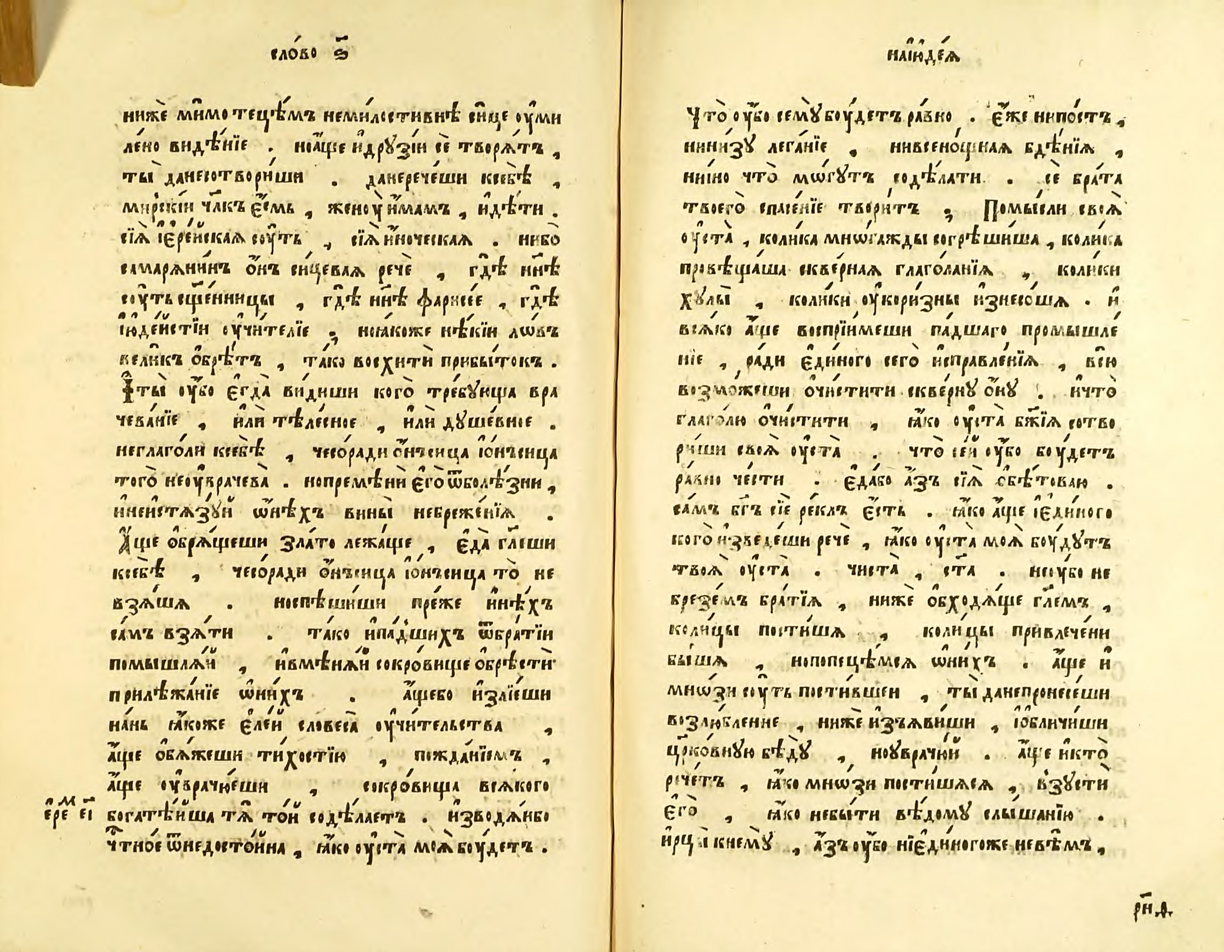 сло́во ѕ҃
нижѐ ми́мо тецѣ́мъ немилостивнѣ̀ си́це оу҆ми
ле́но видѣ́нїе . но а҆́ще и҆ дрꙋзі́и сѐ творѧ́тъ ,
ты̀ да несотвори́ши . да нерече́ши ксебѣ̀ ,
мирскі́й чл҃къ є҆́смь , женоу̀ и҆́мамъ , и҆ дѣ́ти .
сїѧ̀ і҆ере́йскаѧ соу́ть , сїѧ̀ и҆́ноческаѧ . ни́бо
самарѧни́нъ о҆́нъ сицева́ѧ речѐ , гдѣ̀ нн҃ѣ
соу́ть сщ҃е́нницы , гдѣ̀ нн҃ѣ фарисе́е , гдѣ̀
і҆юде́йстїи оу҆чи́телїе , но ꙗ҆́коже нѣ́кїи ло́въ
вели́къ о҆брѣ́тъ , та́ко восхитѝ прибы́токъ .
И҆ ты̀ оу҆́бо є҆гда̀ ви́диши кого̀ тре́бующа вра
чева́нїе , и҆лѝ тѣле́сное , и҆лѝ дꙋше́вное .
неглаго́ли ксебѣ̀ , чесора́ди о҆́нъсица і҆о҆́нъсица
того̀ неоу҆врачева̀ . но премѣнѝ є҆го̀ ѿболѣ́зни ,
и҆неистѧзꙋ́й ѡ҆нѣ́хъ вины̀ небреже́нїѧ .
А҆́ще о҆брѧ́щеши зла́то лежа́ще , є҆да̀ гл҃еши
ксебѣ̀ , чесора́ди о҆́нъсица і҆о҆́нъсица то̀ не
взѧ́шѧ . но спѣши́ши пре́же и҆нѣ́хъ
са́мъ взѧ́ти . та́ко и҆па́дшихъ ѿбра́тїи
помышлѧ́й , и҆вмѣнѧ́й сокро́вище о҆брѣ́сти
прилѣжа́нїе ѡ҆ни́хъ . а҆́щебо и҆злїе́ши
на́нь ꙗ҆́коже є҆ле́й словеса̀ оу҆чи́тельства ,
а҆́ще о҆бѧ́жеши ти́хостїю , пожда́нїемъ ,
а҆́ще оу҆врачꙋ́еши , сокро́вища всѧ́кого
ере еі богатѣ́йша тѧ̀ то́й содѣ́лаетъ . и҆зводѧ́йбо
чтно́е ѿнедосто́йна , ꙗ҆́ко оу҆ста̀ моѧ̀ боу́детъ .
наі҆юде́ѧ
Что̀ оу҆́бо семꙋ̀ боу́детъ ра́вно . є҆́же нипо́стъ ,
нини́зꙋ лега́нїе , нивсено́щнаѧ бдѣ́нїѧ ,
нии́но что̀ мо́гꙋтъ содѣ́лати . сѐ бра́та
твоего̀ спасе́нїе твори́тъ ; Помы́сли своѧ̀
оу҆ста̀ , коли́ка мно́гажды согрѣши́ша , коли́ка
провѣща́ша скве́рнаѧ глаго́ланїѧ , коли́ки
хꙋлы̀ , коли́ки оу҆кори́зны и҆знесо́шѧ . и҆
всѧ́ко а҆́ще воспрїи́меши па́дшаго промышле́
нїе , ра́ди є҆ди́ного сего̀ и҆справле́нїѧ , всю̀
возмо́жеши о҆чи́стити скве́рнꙋ о҆́нꙋ . и҆что̀
глаго́лю о҆чи́стити , ꙗ҆́ко оу҆ста̀ бж҃їѧ сотво
ри́ши своѧ̀ оу҆ста̀ . что̀ се́й оу҆́бо боу́детъ
ра́вно че́сти . є҆да́бо а҆́зъ сїѧ̀ о҆бѣтова́ю .
са́мъ бг҃ъ сїѐ ре́клъ є҆́сть . ꙗ҆́ко а҆́ще і҆еди́ного
кого̀ и҆зведе́ши речѐ , ꙗ҆́ко оу҆ста̀ моѧ̀ боу́дꙋтъ
твоѧ̀ оу҆ста̀ . чи́ста , ст҃а . неоу҆́бо не
брезе́мъ бра́тїѧ , нижѐ о҆бходѧ́ще гл҃емъ ,
коли́цы пости́шѧ , коли́цы привлече́ни
бы́шѧ , но попеце́мсѧ ѡ҆ни́хъ . а҆́ще и҆
мно́зи соу́ть пости́вшеи , ты̀ да непронесе́ши
возлю́бленне , нижѐ и҆зъѧви́ши , і҆о҆бличи́ши
цр҃ко́вную бѣ́дꙋ , ноу҆врачꙋ́й . а҆́ще и҆кто̀
рече́тъ , ꙗ҆́ко мно́зи пости́шѧсѧ , взꙋстѝ
є҆го̀ , ꙗ҆́ко небы́ти вѣ́домꙋ слы́шанїю .
и҆рцы̀ кнемꙋ̀ , а҆́зъ оу҆́бо нїеди́ногоже невѣ́мъ ,
рн҃д